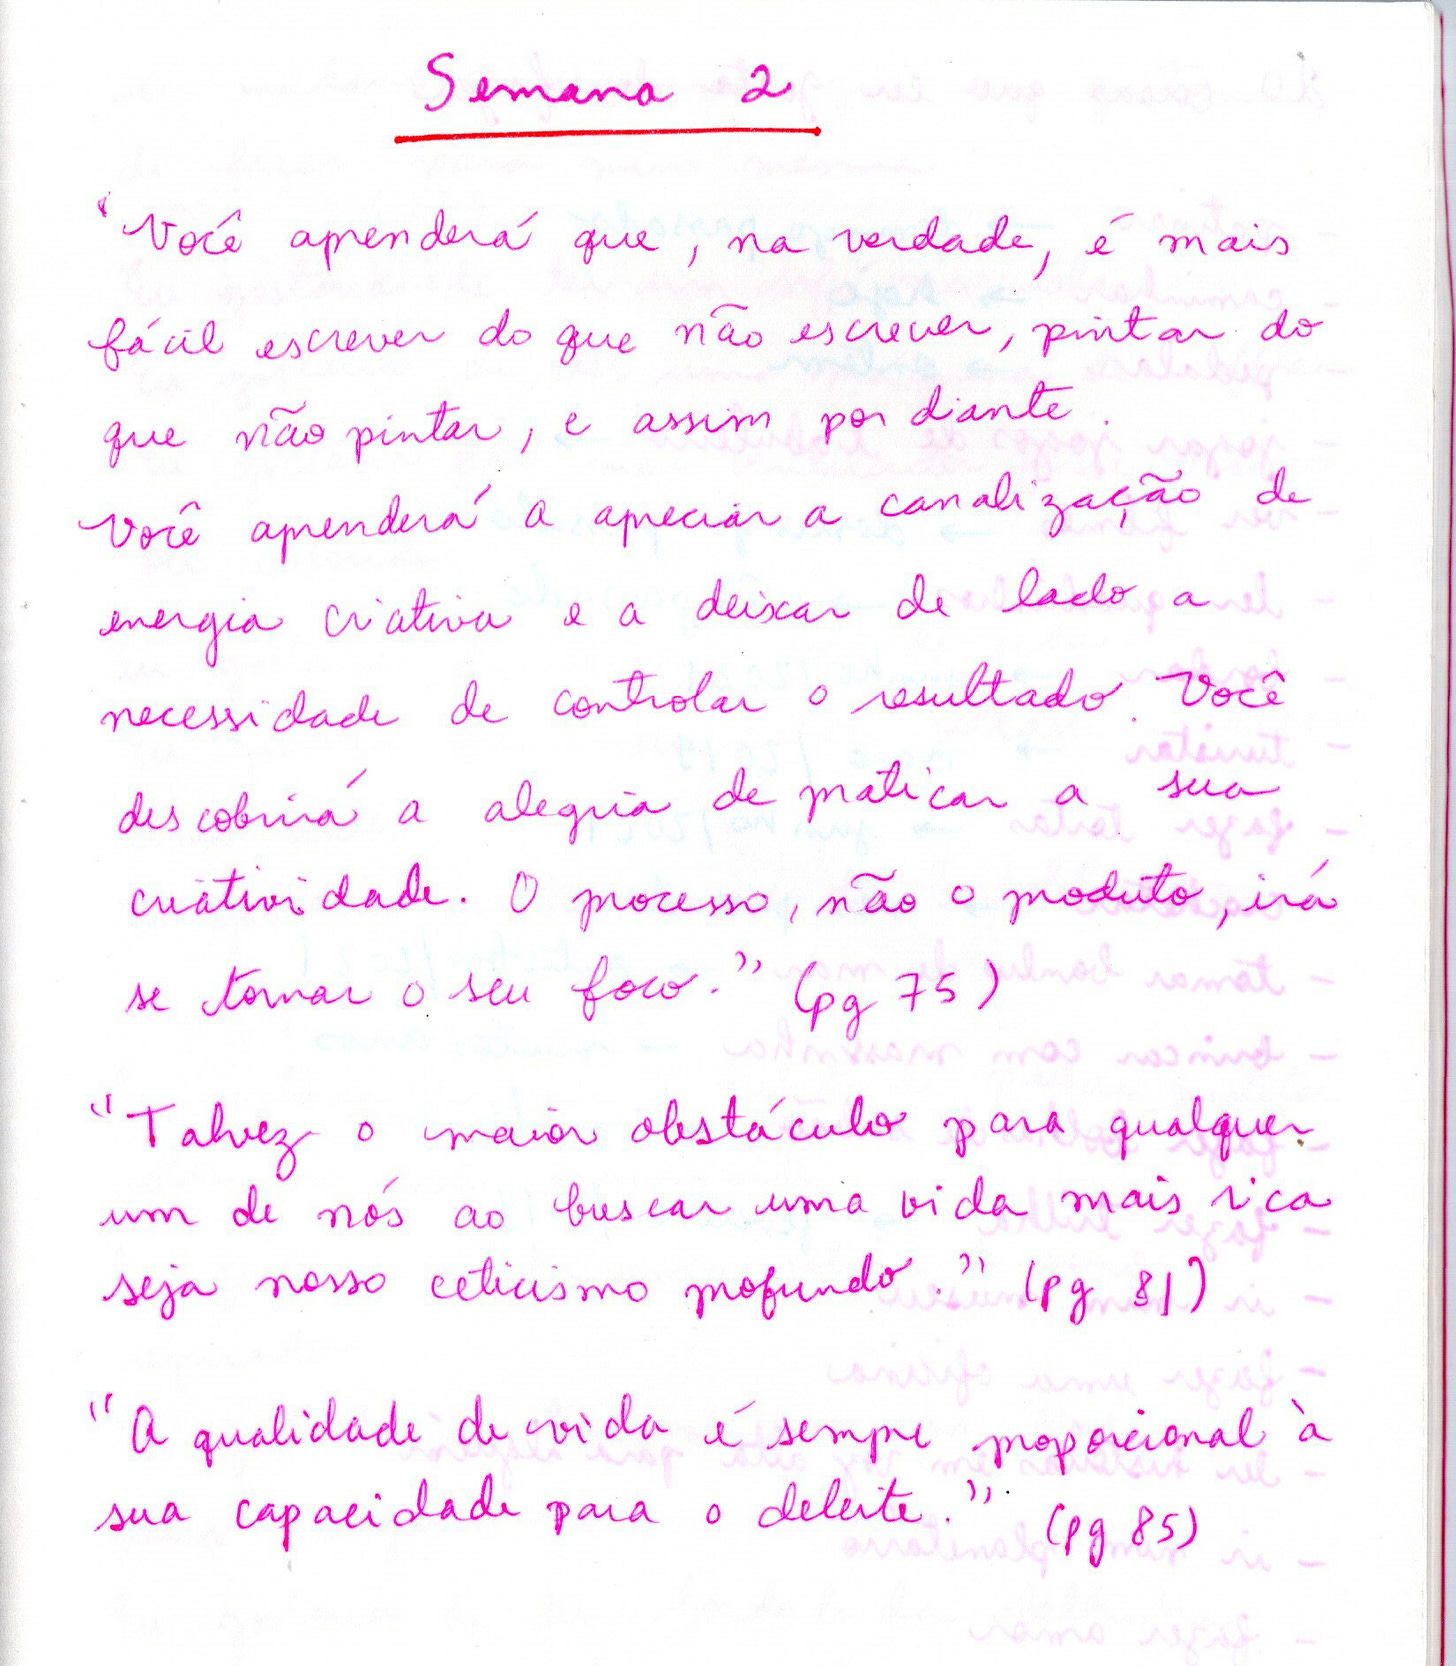 Semana 2
"Você aprenderá que, na verdade, é mais
fácil escrever do que não escrever, pintar do
que não pintar, e assim por diante.
Você aprenderá a apreciar a canalização de
energia criativa e a deixar de lado a
necessidade de controlar o resultado. Você
descobrirá a alegria de praticar a sua
criatividade. O processo, não o produto, irá
se tornar o seu foco." (pg 75)
"Talvez o maior obstáculo para qualquer
um de nós ao buscar uma vida mais rica
seja nosso ceticismo profundo." (pg 81)
"A qualidade de vida é sempre proporcional à
sua capacidade para o deleite." (pg 85)